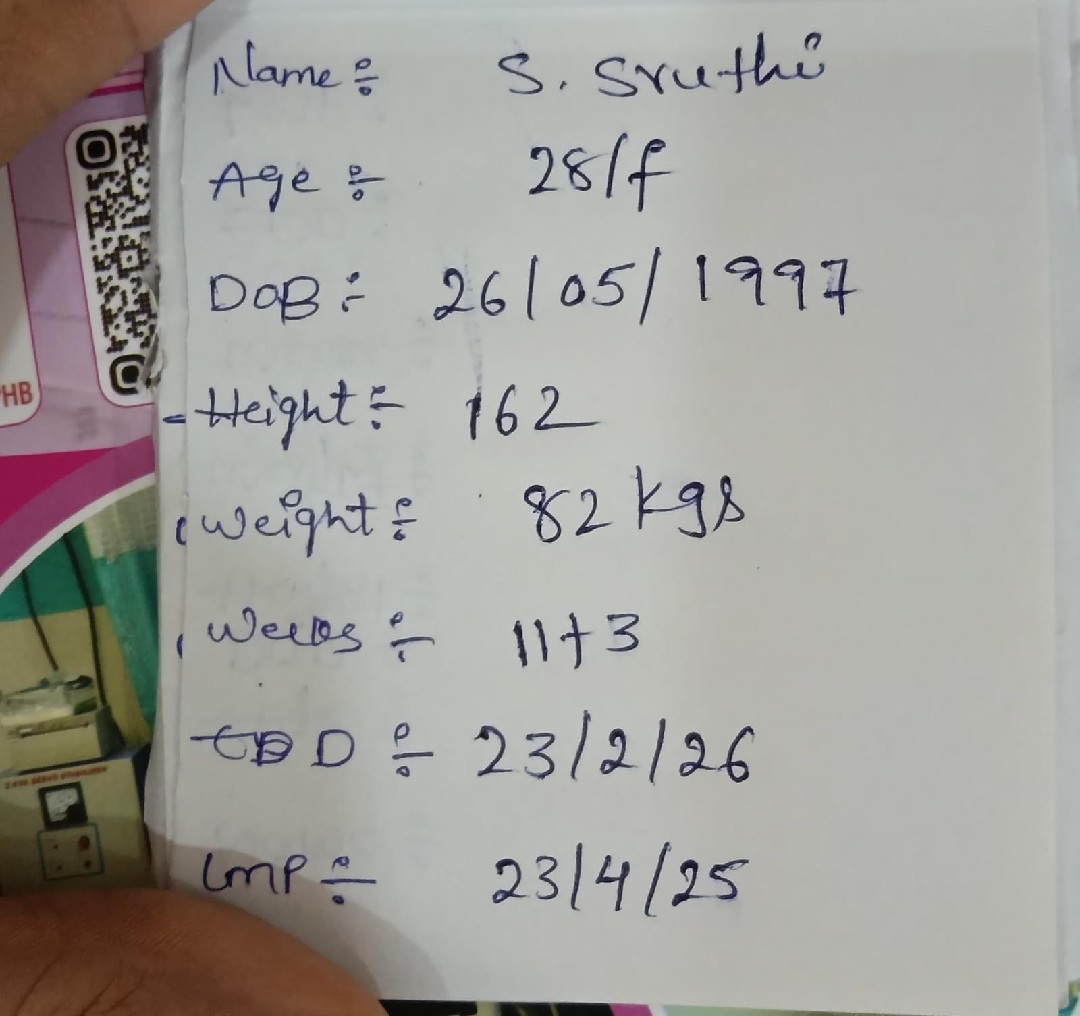 Name : S. Sruthi
Age : 28/f
DOB : 26/05/1997
Height : 162
Weight : 82 kgs
Weeks : 11+3
EDD : 23/2/26
LMP : 23/4/25
HB